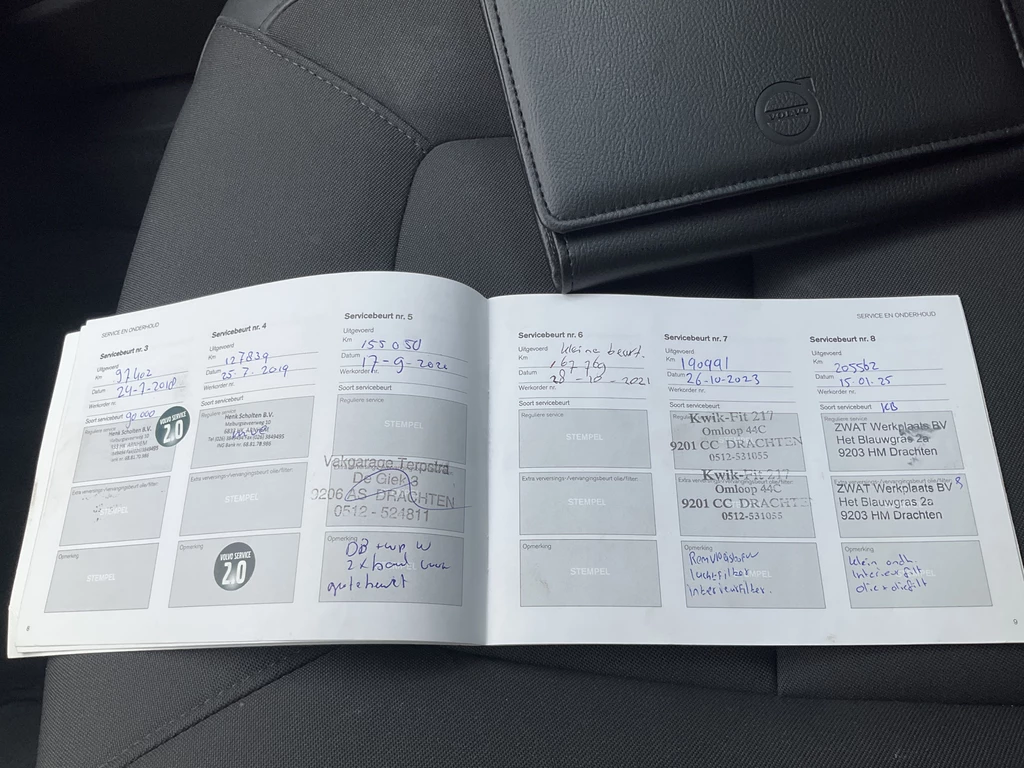 VOLVO
SERVICE EN ONDERHOUD
Servicebeurt nr. 3
Uitgevoerd
Km 97402
Datum 24-7-2018
Werkorder nr.
Soort servicebeurt 90 000
Reguliere service
Henk Scholten B.V.
VOLVO SERVICE
2.0
Extra verversings-/vervangingsbeurt olie/filter
STEMPEL
Opmerking
STEMPEL
8
Servicebeurt nr. 4
Uitgevoerd
Km 127839
Datum 25-7-2019
Werkorder nr.
Soort servicebeurt
Reguliere service
Henk Scholten B.V.
Extra verversings-/vervangingsbeurt olie/filter
STEMPEL
Opmerking
VOLVO SERVICE
2.0
Servicebeurt nr. 5
Uitgevoerd
Km 155050
Datum 17-9-2020
Werkorder nr.
Soort servicebeurt
Reguliere service
STEMPEL
Vakgarage Terpstra
De Giek 3
9206 AS DRACHTEN
0512 - 524811
Opmerking
2 x band
Servicebeurt nr. 6
Uitgevoerd kleine beurt.
Km 167769
Datum 28-10-2021
Werkorder nr.
Soort servicebeurt
Reguliere service
STEMPEL
Extra verversings-/vervangingsbeurt olie/filter
STEMPEL
Opmerking
STEMPEL
SERVICE EN ONDERHOUD
Servicebeurt nr. 7
Uitgevoerd
Km 190991
Datum 26-10-2023
Werkorder nr.
Soort servicebeurt
Reguliere service
Kwik-Fit 217
Omloop 44C
9201 CC DRACHTEN
0512-531055
Extra verversings-/vervangingsbeurt olie/filter
Kwik-Fit 217
Omloop 44C
9201 CC DRACHTEN
0512-531055
Opmerking
Remvloeistof
luchtfilter
interieurfilter.
Servicebeurt nr. 8
Uitgevoerd
Km 205562
Datum 15-01-25
Werkorder nr.
Soort servicebeurt KB
Reguliere service
ZWAT Werkplaats BV
Het Blauwgras 2a
9203 HM Drachten
Extra verversings-/vervangingsbeurt olie/filter
ZWAT Werkplaats BV
Het Blauwgras 2a
9203 HM Drachten
Opmerking
klein ondh
Interieurfilt
olie + oliefilt
9